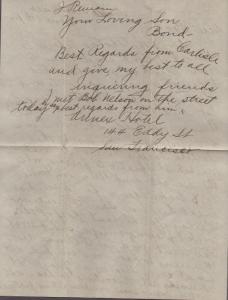 I Remain
Your Loving Son
Bond
Best Regards from Carlisle
and give, my best to all
inquiring friends
I met Bob Nelson on the street
today best regards from him.
Hotel
144 Eddy St
San Francisco